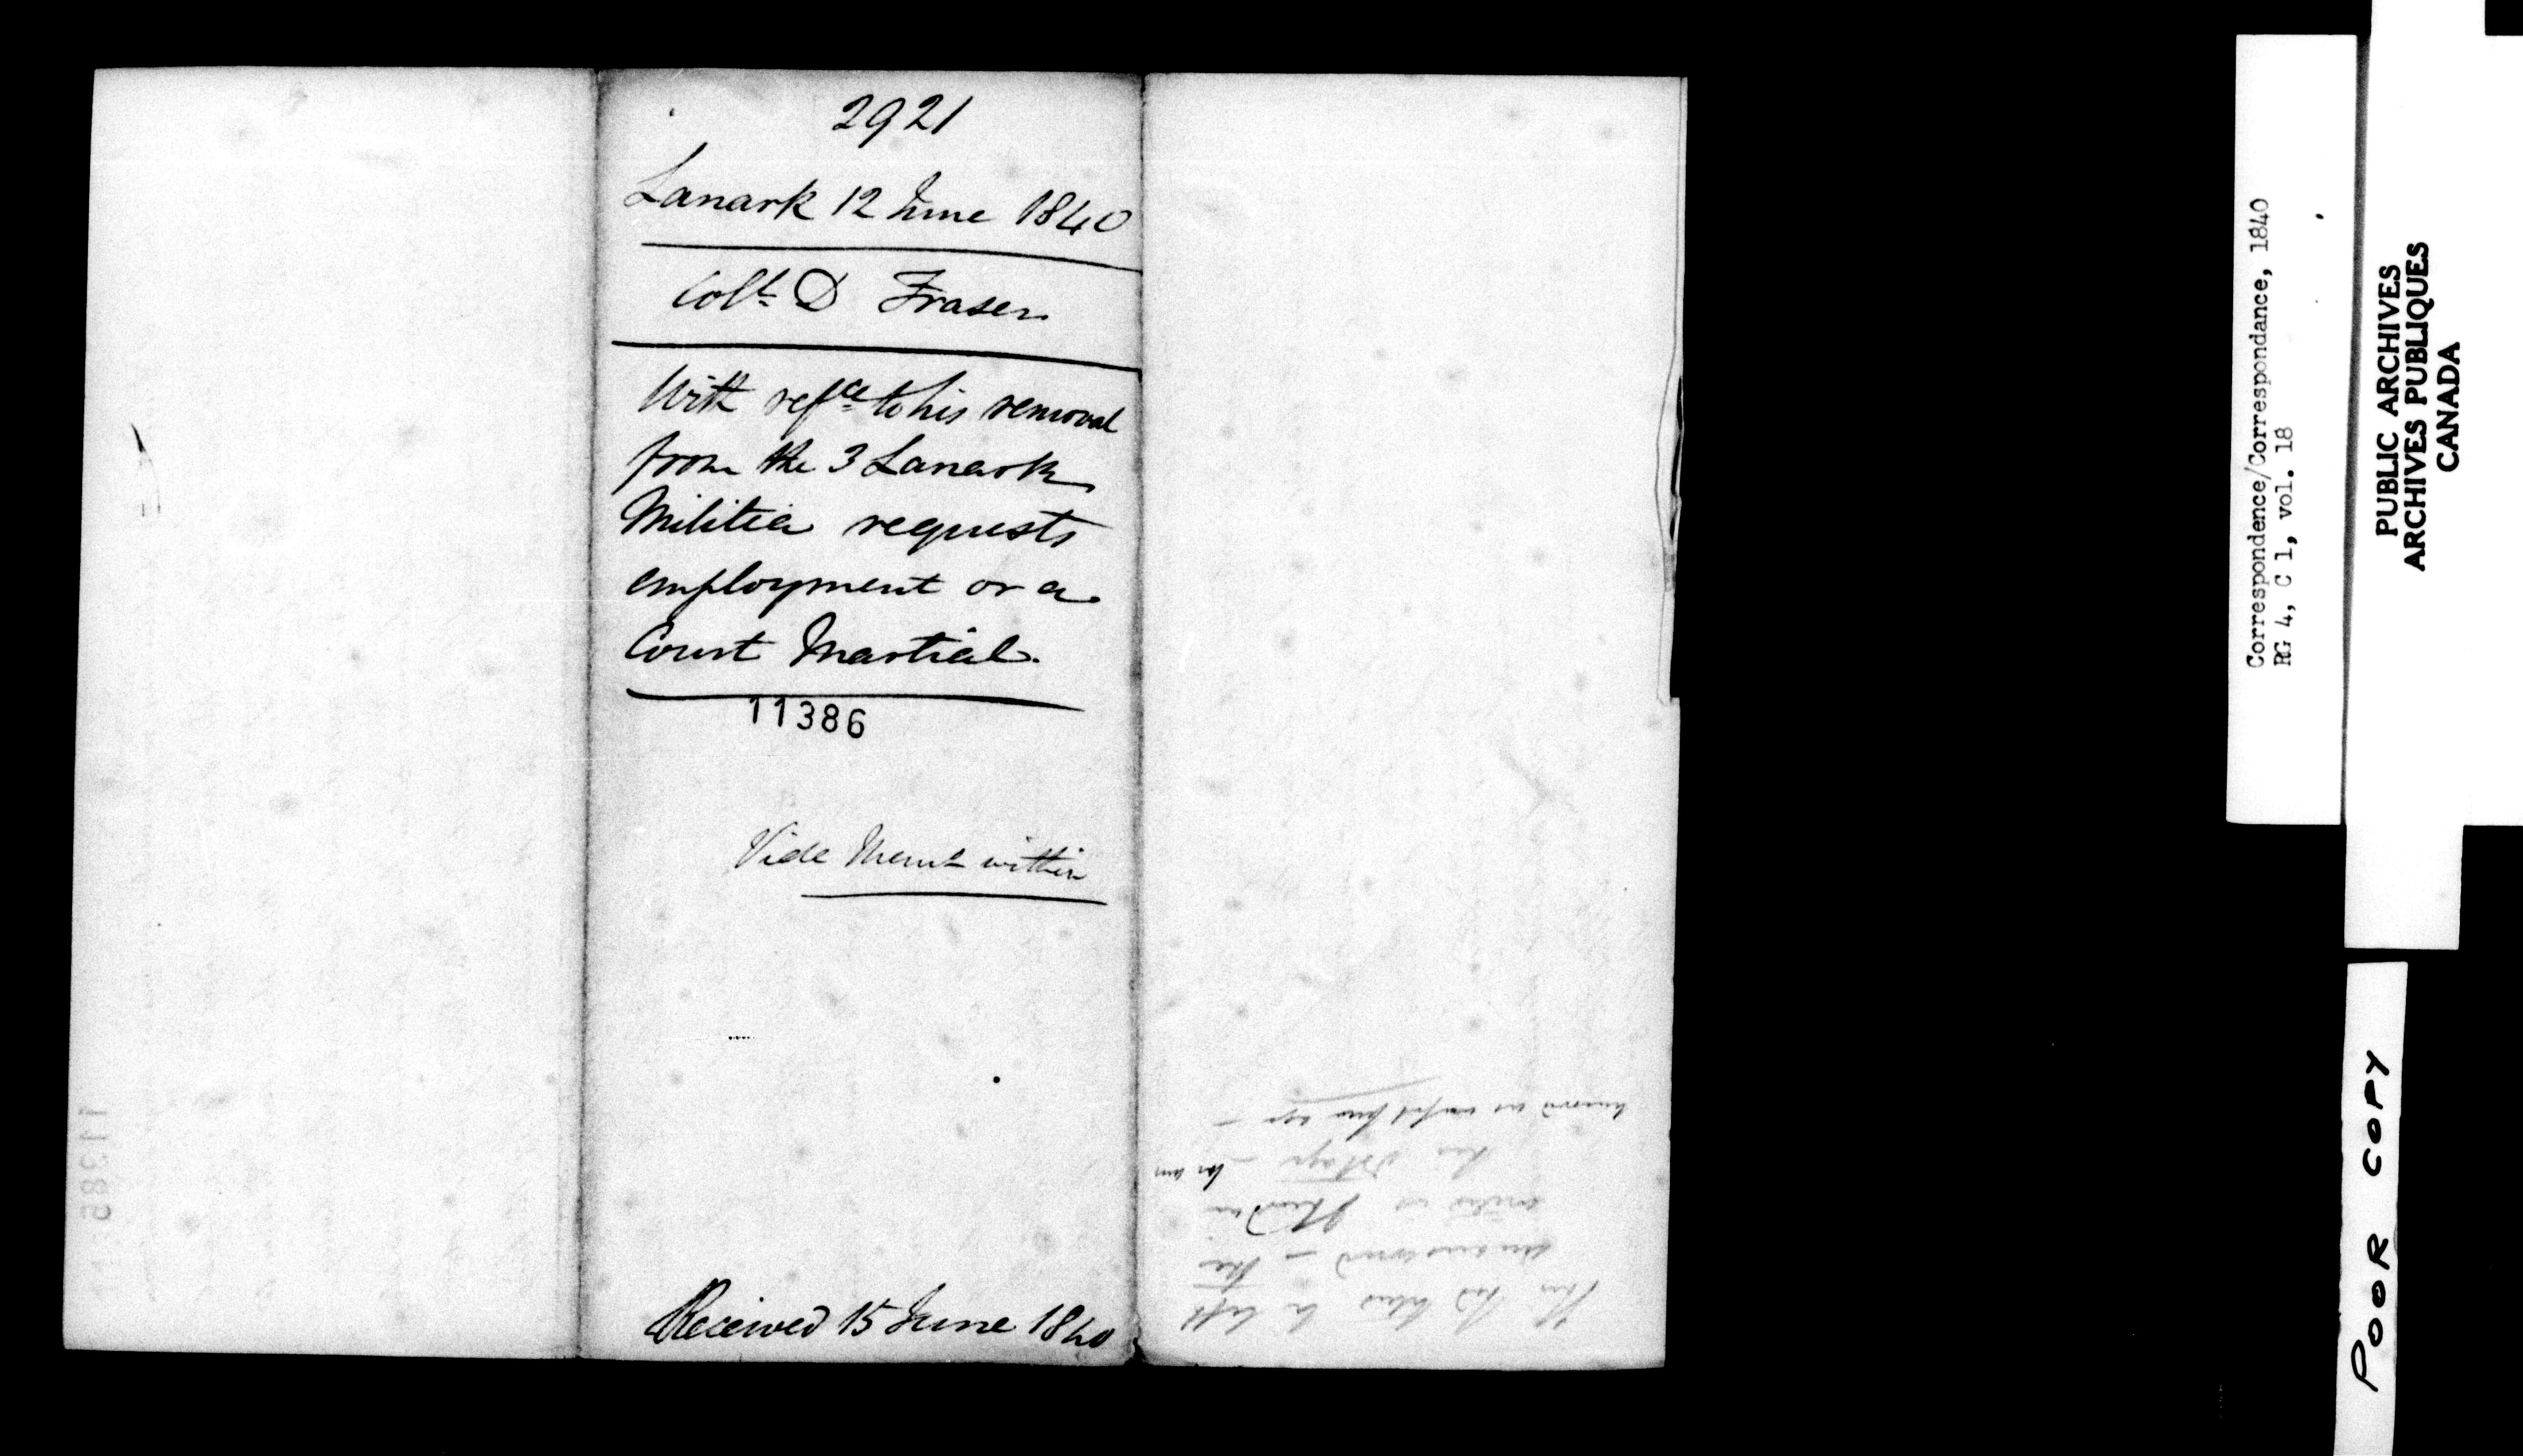 2921
Lanark 12 June 1840
Colt. D Fraser
With refce to his removal
from the 3 Lanark
Militia requests
employment or a
Court Martial.
11386
Vide Memt within
Received 15 June 1840
11385
Correspondence/Correspondance, 1840
RG 4, C 1, vol. 18
PUBLIC ARCHIVES
ARCHIVES PUBLIQUES
CANADA
POOR COPY